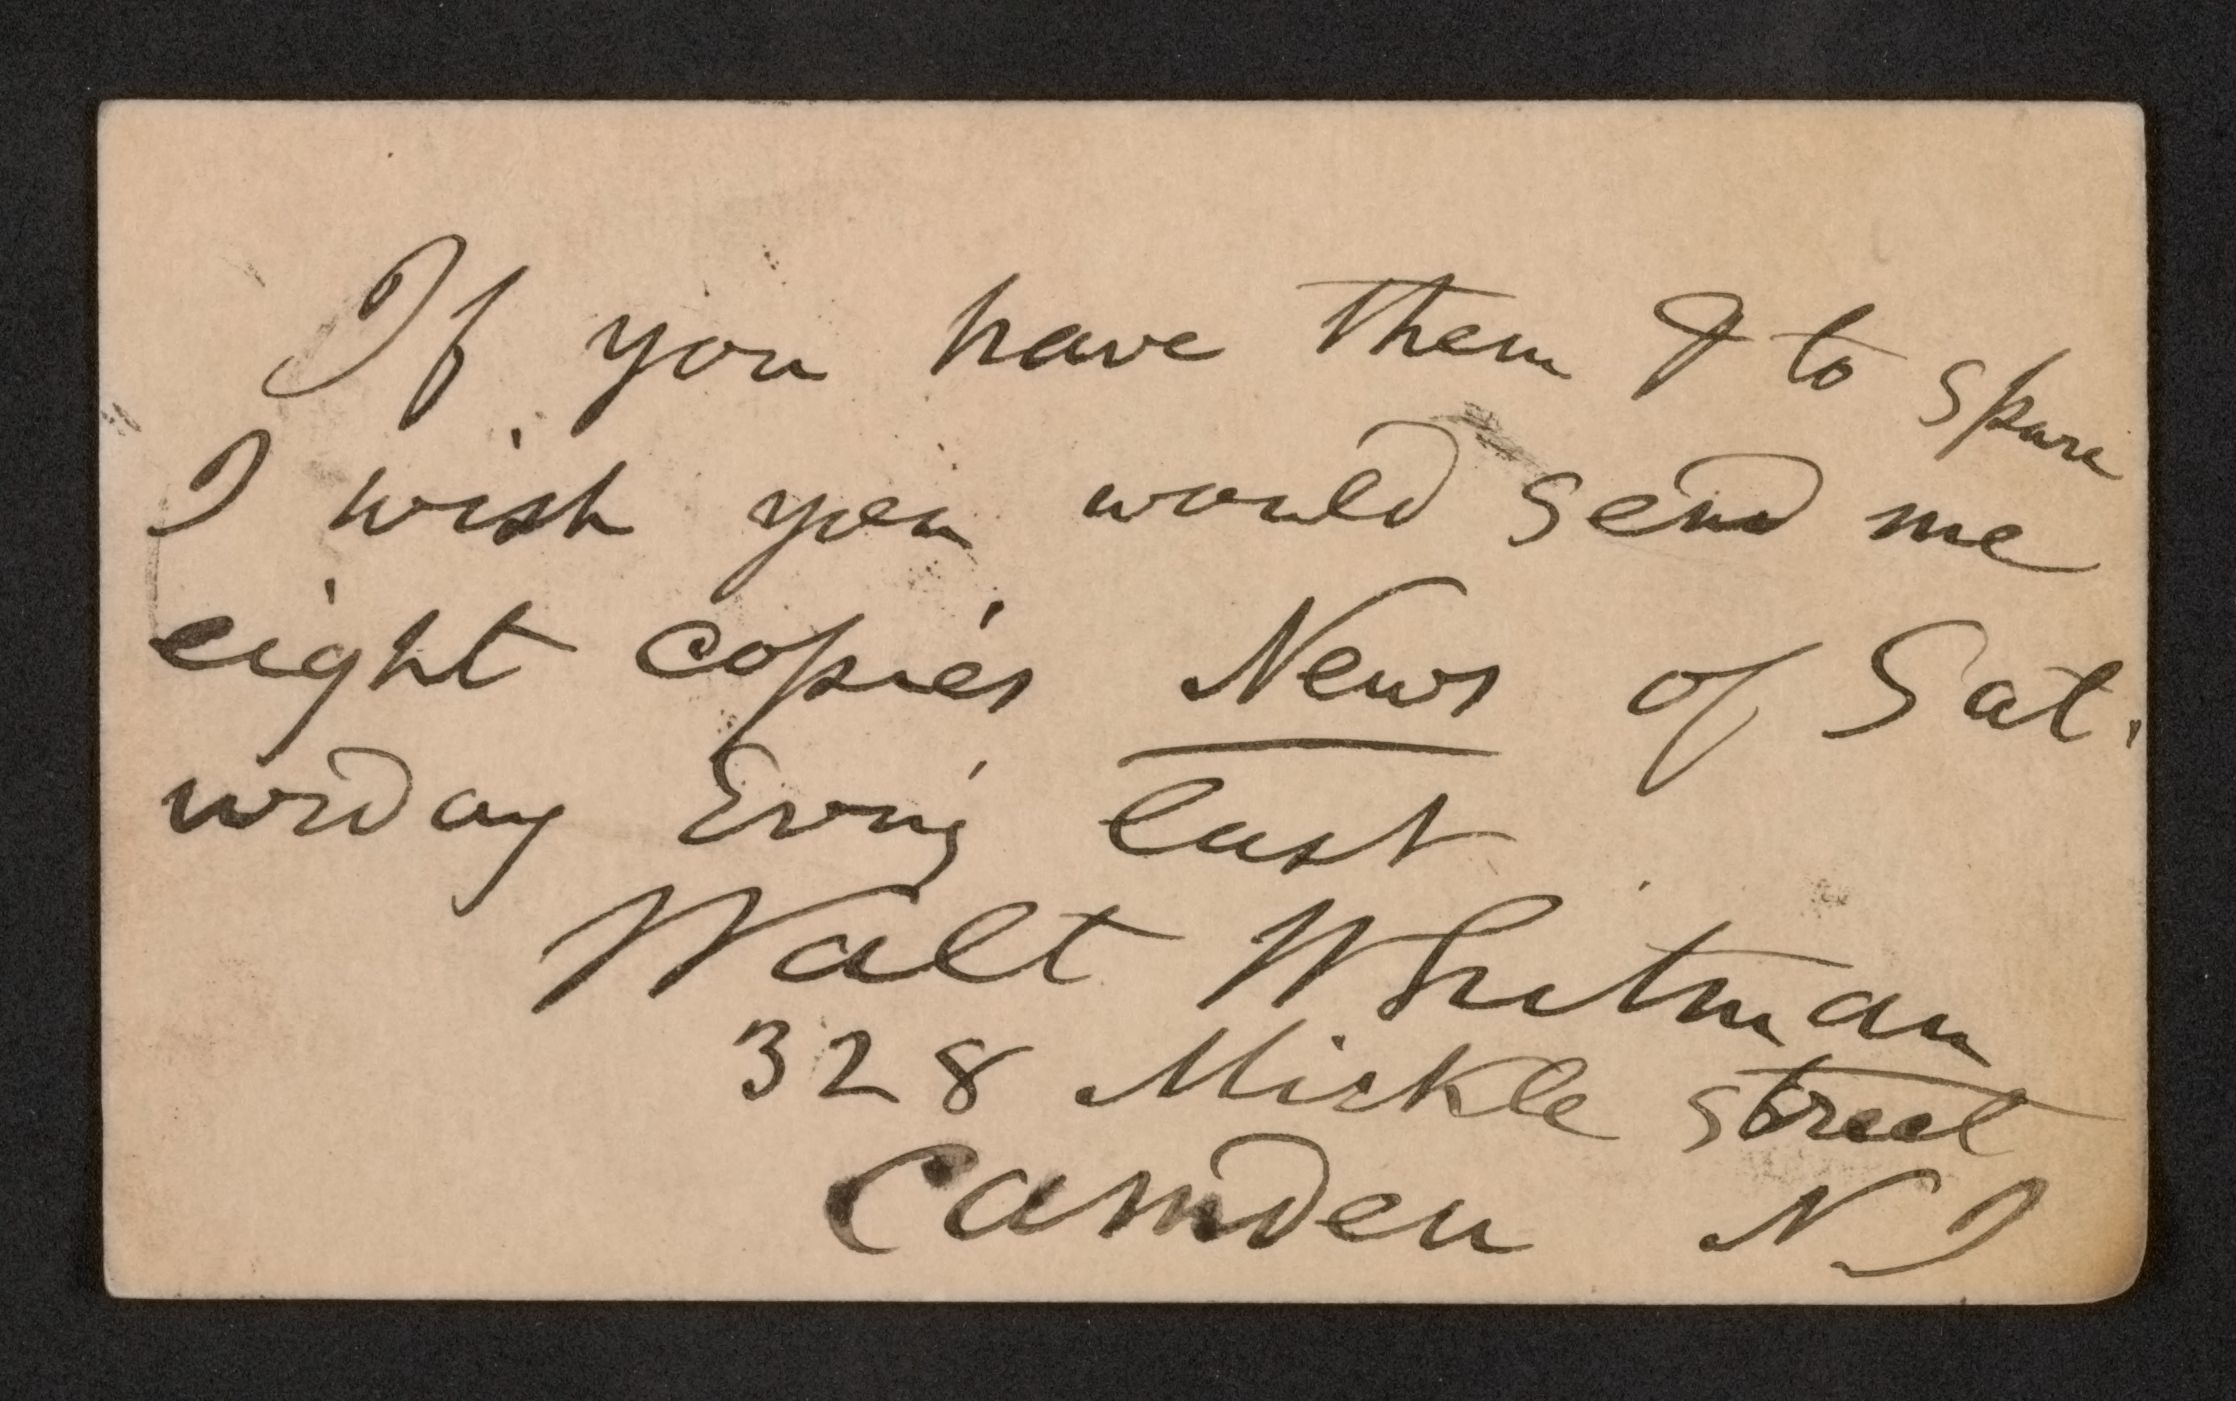 If you have them & to spare
I wish you would send me
eight copies News of Sat-
urday Ev'ng last
Walt Whitman
328 Mickle street
Camden N J